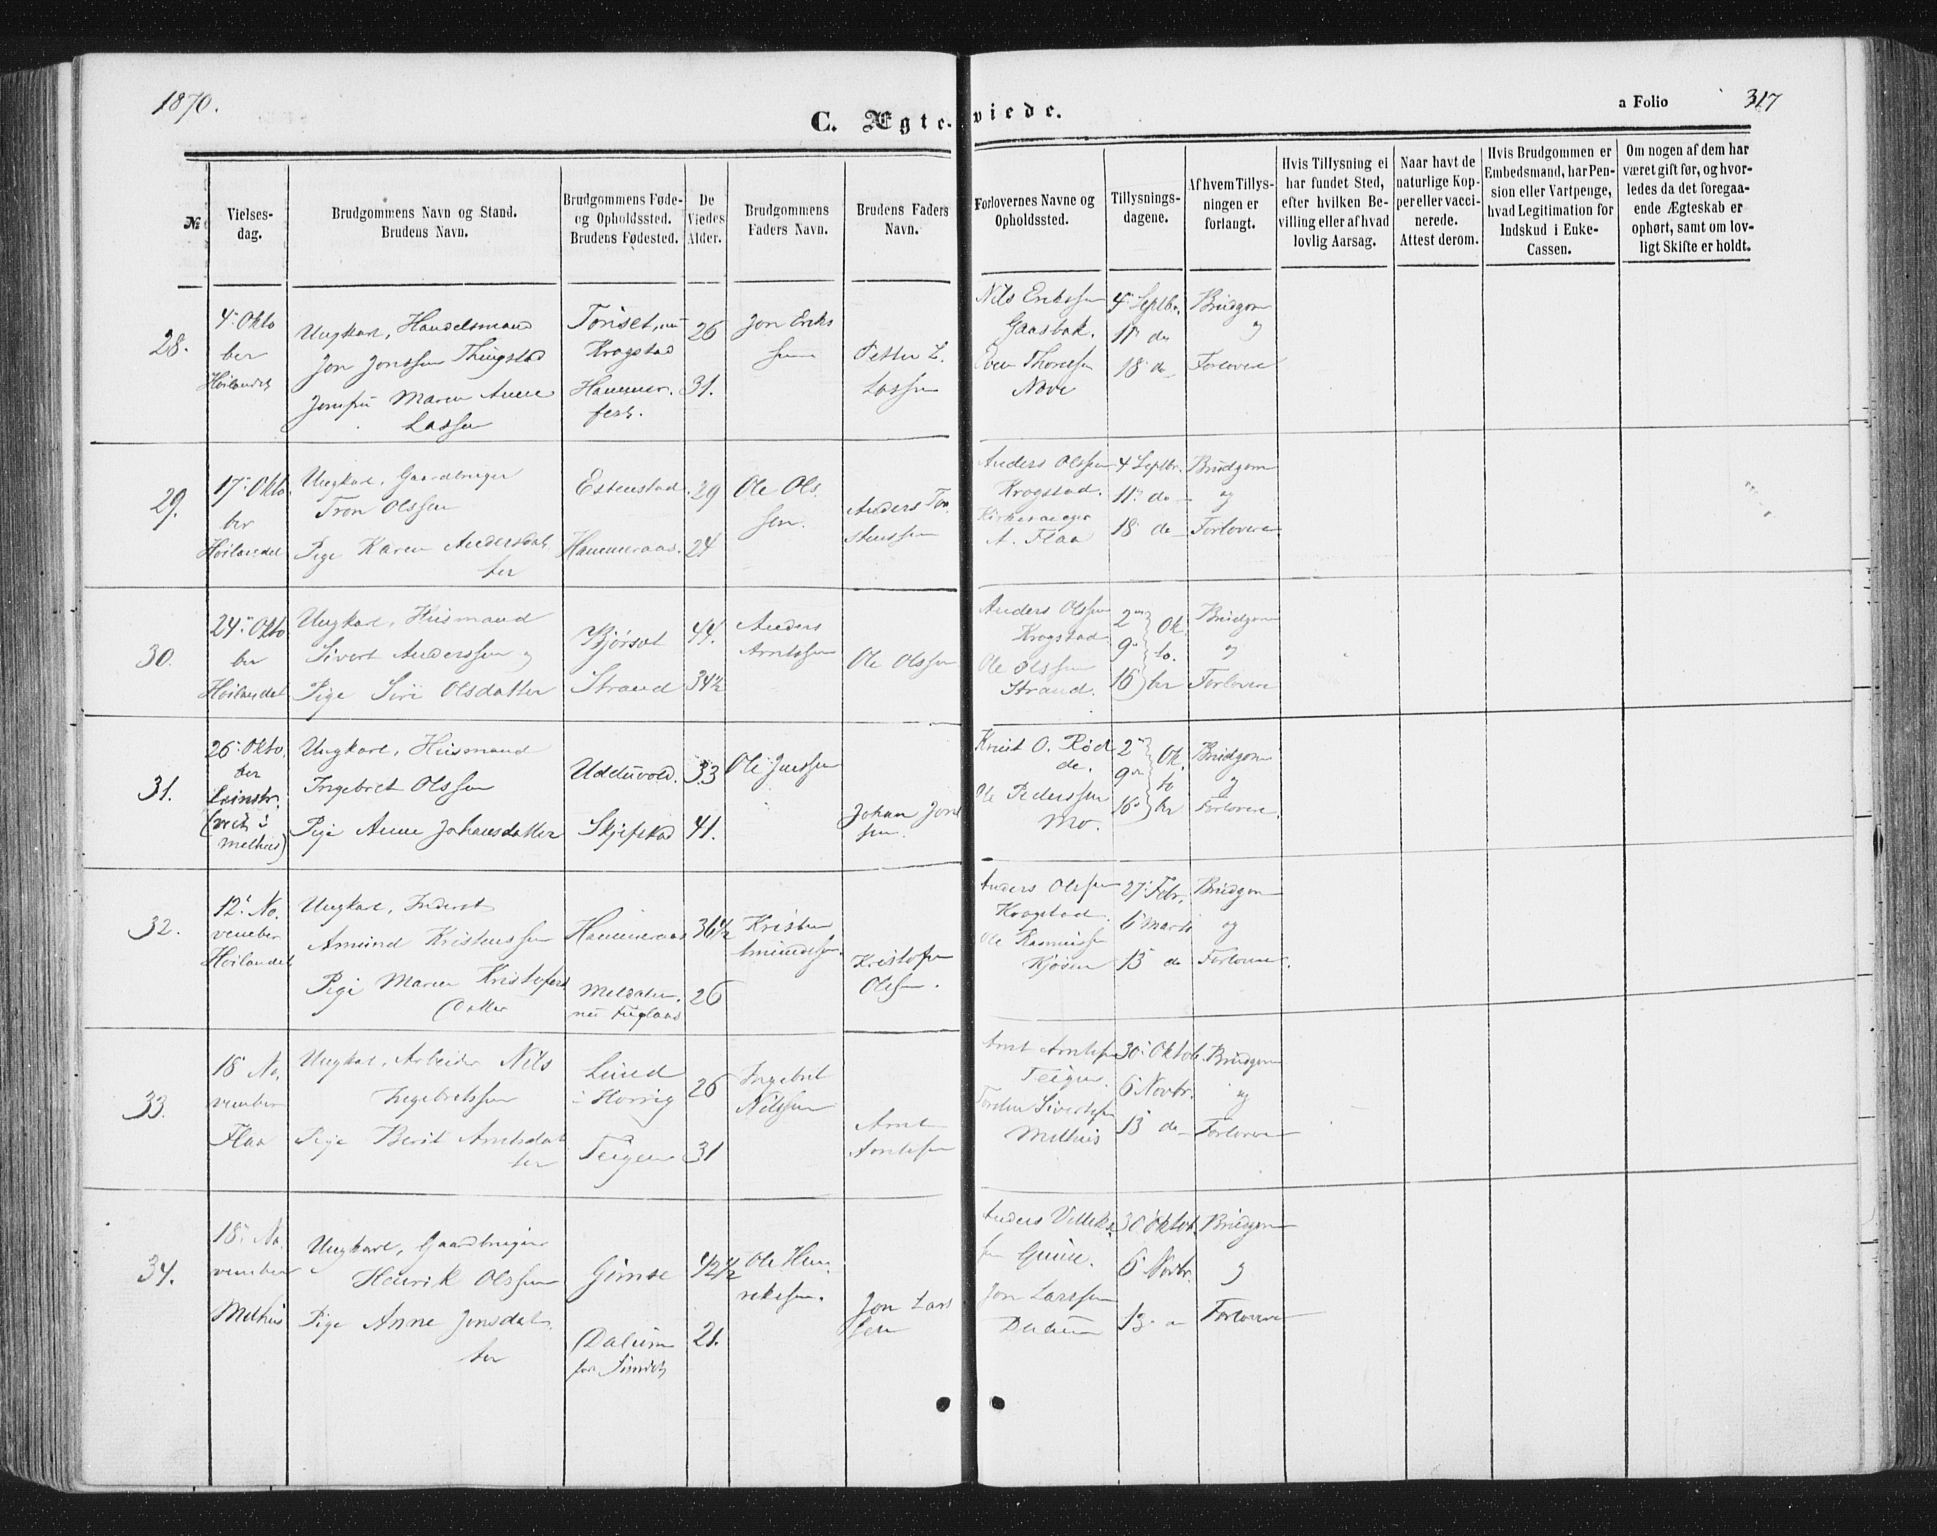 1870.
C. Ægteviede.
a Folio 317
№
Vielses-
dag.
Brudgommens Navn og Stand.
Brudens Navn.
Brudgommens Føde-
og Opholdssted.
Brudens Fødested.
De
Viedes
Alder.
Brudgommens
Faders Navn.
Brudens Faders
Navn.
Forlovernes Navne og
Opholdssted.
Tillysnings-
dagene.
Af hvem Tillys-
ningen er
forlangt.
Hvis Tillysning ei
har fundet Sted,
efter hvilken Be-
villing eller af hvad
lovlig Aarsag.
Naar havt de
naturlige Kop-
per eller vacci-
nerede.
Attest derom.
Hvis Brudgommen er
Embedsmand, har Pen-
sion eller Vartpenge,
hvad Legitimation for
Indskud i Enke-
Cassen.
Om nogen af dem har
været gift før, og hvor-
ledes da det foregaa-
ende Ægteskab er
ophørt, samt om lov-
ligt Skifte er holdt.
28.
4' Okto
ber
Høilandet
Ungkarl, Handelsmand
Jon Jonssen Thingstad
Jomfru Maren Anne
Lassen
Tonset, nu
Krogstad
Hammer-
fest.
26
31.
Jon Eriks
sen
Petter L.
Lassen
Nils Erikssen
Gaasbak.
Even Thoresen
Nove
4' Septbr.
11' do
18' do
Brudgom
og
Forlovere
29.
17' Okto
ber
Høilandet
Ungkarl, Gaardbruger
Tron Olssen
Pige Karen Andersdat
ter
Estenstad
Hammeraas.
29
24
Ole Ols
sen.
Anders Tor
stenssen
Anders Olssen
Krogstad.
Kirkesanger
A. Flaa
4 Septbr.
11' do
18' do
Brudgom
og
Forlovere
30.
24' Okto
ber
Høilandet
Ungkarl, Husmand
Sivert Anderssen og
Pige Siri Olsdatter
Bjørset
Strand
44.
34½
Anders
Arntssen
Ole Olssen
Anders Olssen
Krogstad
Ole Olssen
Strand.
2'
9'
16'
Ok
to.
ber
Brudgom
og
Forlovere
31.
26' Okto.
ber
Leinstr.
(viet i
Melhus)
Ungkarl, Husmand
Ingebret Olssen
Pige Anne Johansdatter
Udduvold.
Skjefstad
33
41.
Ole Jenssen
Johan Jons
sen.
Knut O. Rød
de.
Ole Pederssen
Mo.
2'
9'
16'
Ok
to
ber
Brudgom
og
Forlovere.
32.
12' No.
vember
Høilandet
Ungkarl, Inderst
Amund Kristenssen
Pige Maren Kristofers
Datter
Hammeraas
Meldalen.
nu Fuglaas
36½
26
Kristen
Amundssen
Kristofer
Olsen.
Anders Olssen
Krogstad.
Ole Rasmussen
Kjøsen
27' Febr.
6' Marts
13 do
Brudgom
og
Forlovere.
33.
18 No.
vember
Flaa
Ungkarl, Arbeider Nils
Ingebretssen
Pige Berit Arntsdat
ter
Lund
i Horrig
Teigen
26
31
Ingebret
Nilssen
Arnt
Arntssen
Arnt Arntssen
Teigen.
Torsten Sivertssen
Melhus
30' Oktob.
6' Novbr.
13' do
Brudgom
og
Forlovere
34.
18' No.
vember
Melhus
Ungkarl, Gaardbruger
Henrik Olssen
Pige Anne Jonsdat
ter
Gimse
Dalum
42½
21.
Ole Hen
rikssen.
Jon Lars
sen
Anders
sen Gimse.
Jon Larssen
30' Oktob.
6' Novbr.
13'
Brudgom
og
Forlovere